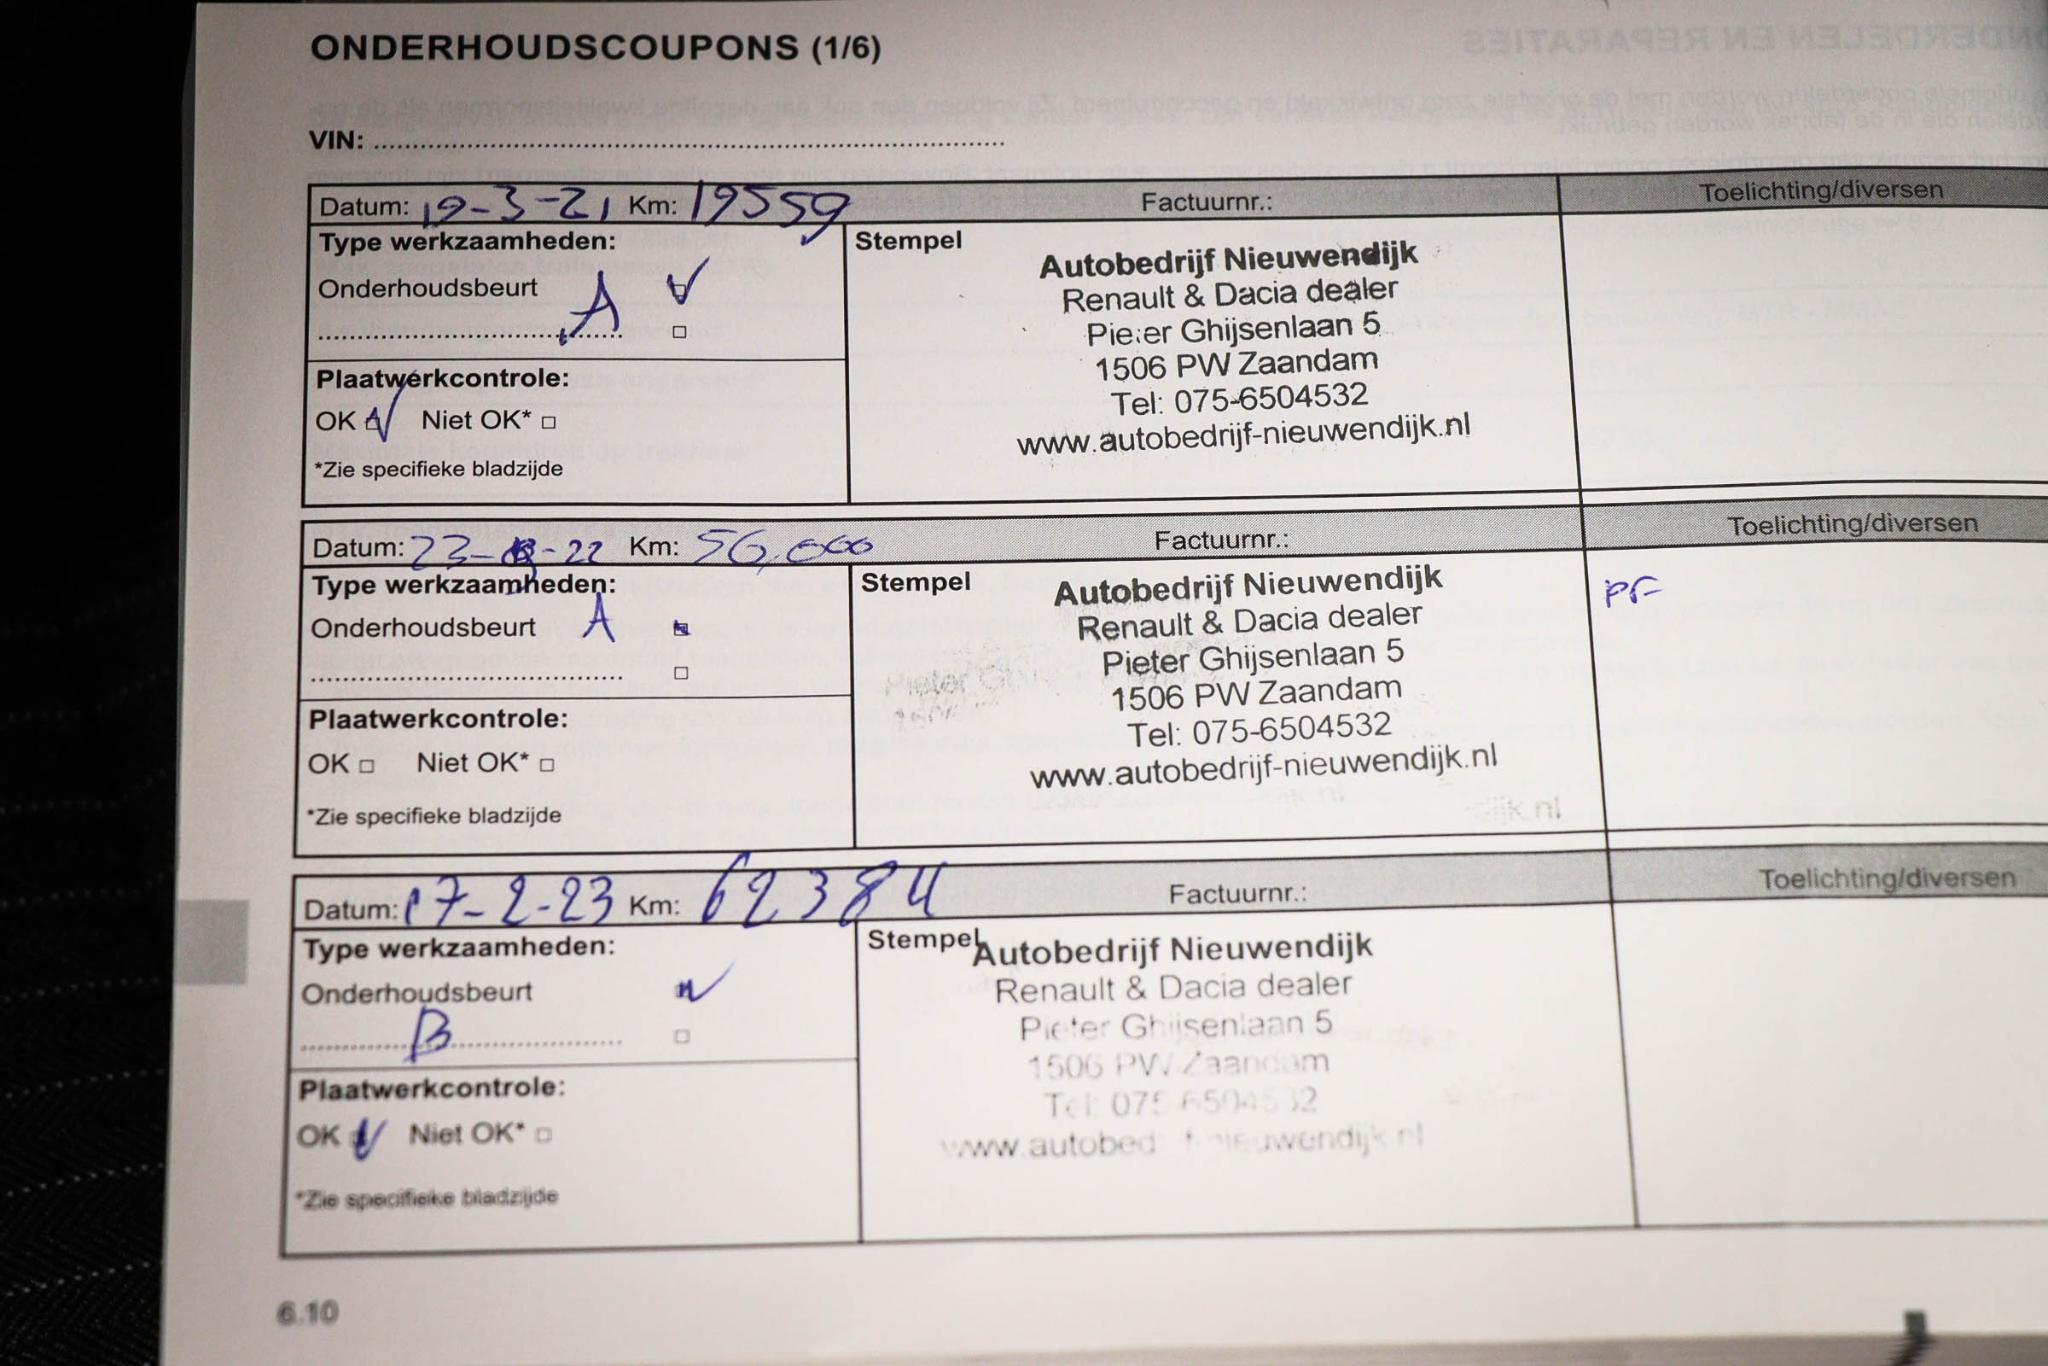 ONDERHOUDSCOUPONS (1/6)
VIN:
Datum: 19-3-21 Km: 19559 Factuurnr.: Toelichting/diversen
Type werkzaamheden:
Onderhoudsbeurt A
Plaatwerkcontrole:
OK Niet OK*
*Zie specifieke bladzijde
Stempel
Autobedrijf Nieuwendijk
Renault & Dacia dealer
Pieter Ghijsenlaan 5
1506 PW Zaandam
Tel: 075-6504532
www.autobedrijf-nieuwendijk.nl
Datum: 23- -22 Km: 56,000 Factuurnr.: Toelichting/diversen
Type werkzaamheden:
Onderhoudsbeurt A
Plaatwerkcontrole:
OK Niet OK*
*Zie specifieke bladzijde
Stempel
Autobedrijf Nieuwendijk
Renault & Dacia dealer
Pieter Ghijsenlaan 5
1506 PW Zaandam
Tel: 075-6504532
www.autobedrijf-nieuwendijk.nl
PF
Datum: 17-2-23 Km: 62384 Factuurnr.: Toelichting/diversen
Type werkzaamheden:
Onderhoudsbeurt
B
Plaatwerkcontrole:
OK Niet OK*
*Zie specifieke bladzijde
Stempel
Autobedrijf Nieuwendijk
Renault & Dacia dealer
Pieter Ghijsenlaan 5
1506 PW Zaandam
Tel: 075-6504532
www.autobedrijf-nieuwendijk.nl
6.10